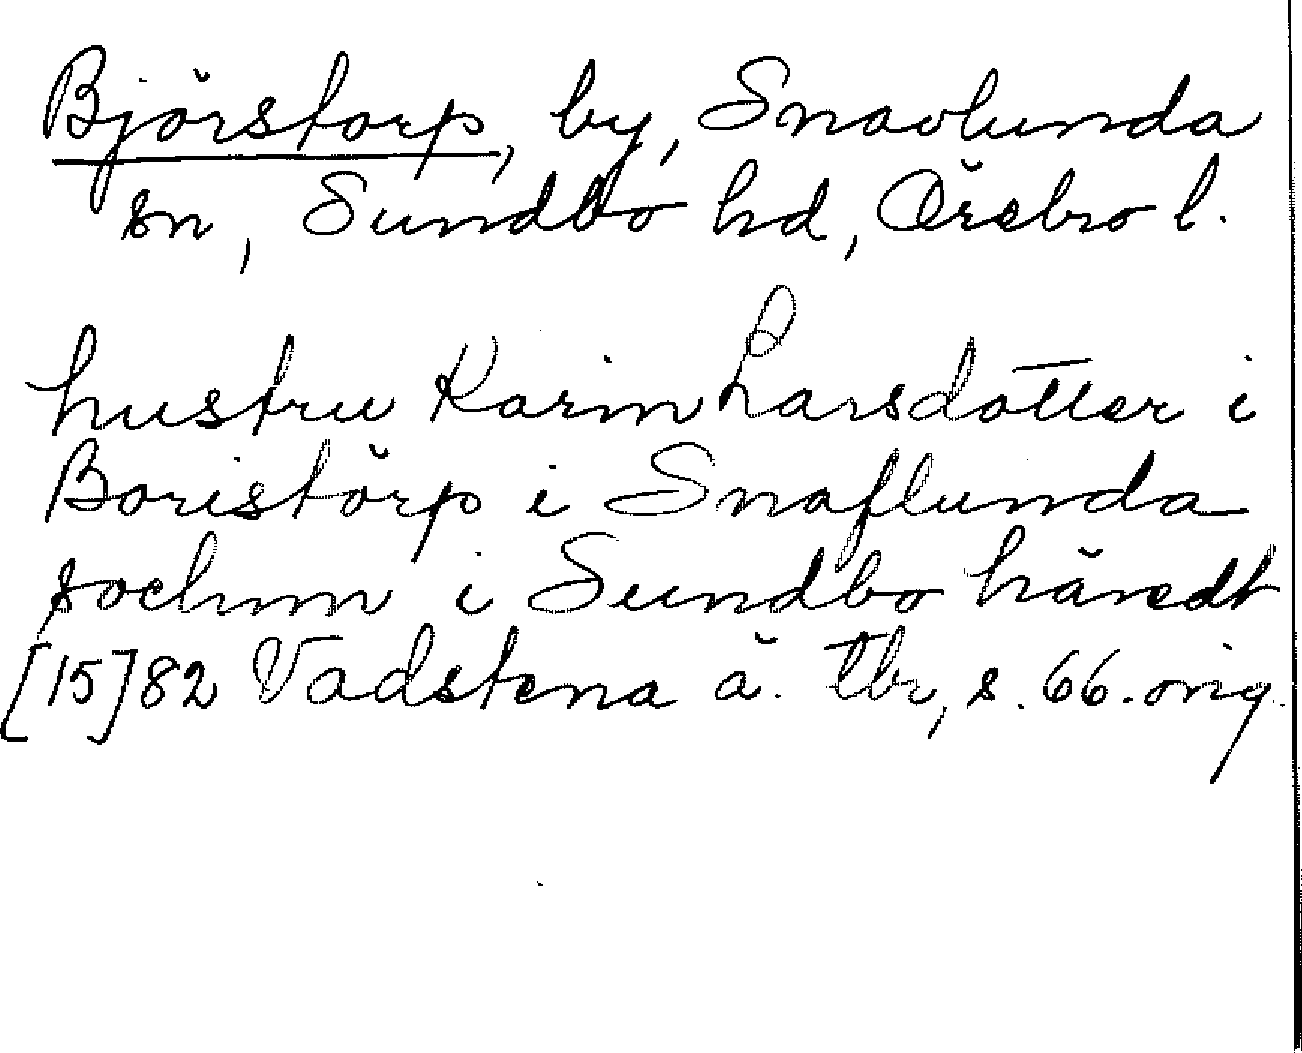 Björstorp, by, Snavlunda
sn, Sundbo hd, Örebro l.
hustru Karin Larsdotter i
Boristörp i Snaflunda
sochnn i Sundbo häredt
[15]82 Vadstena ä. tbr, s. 66. orig.